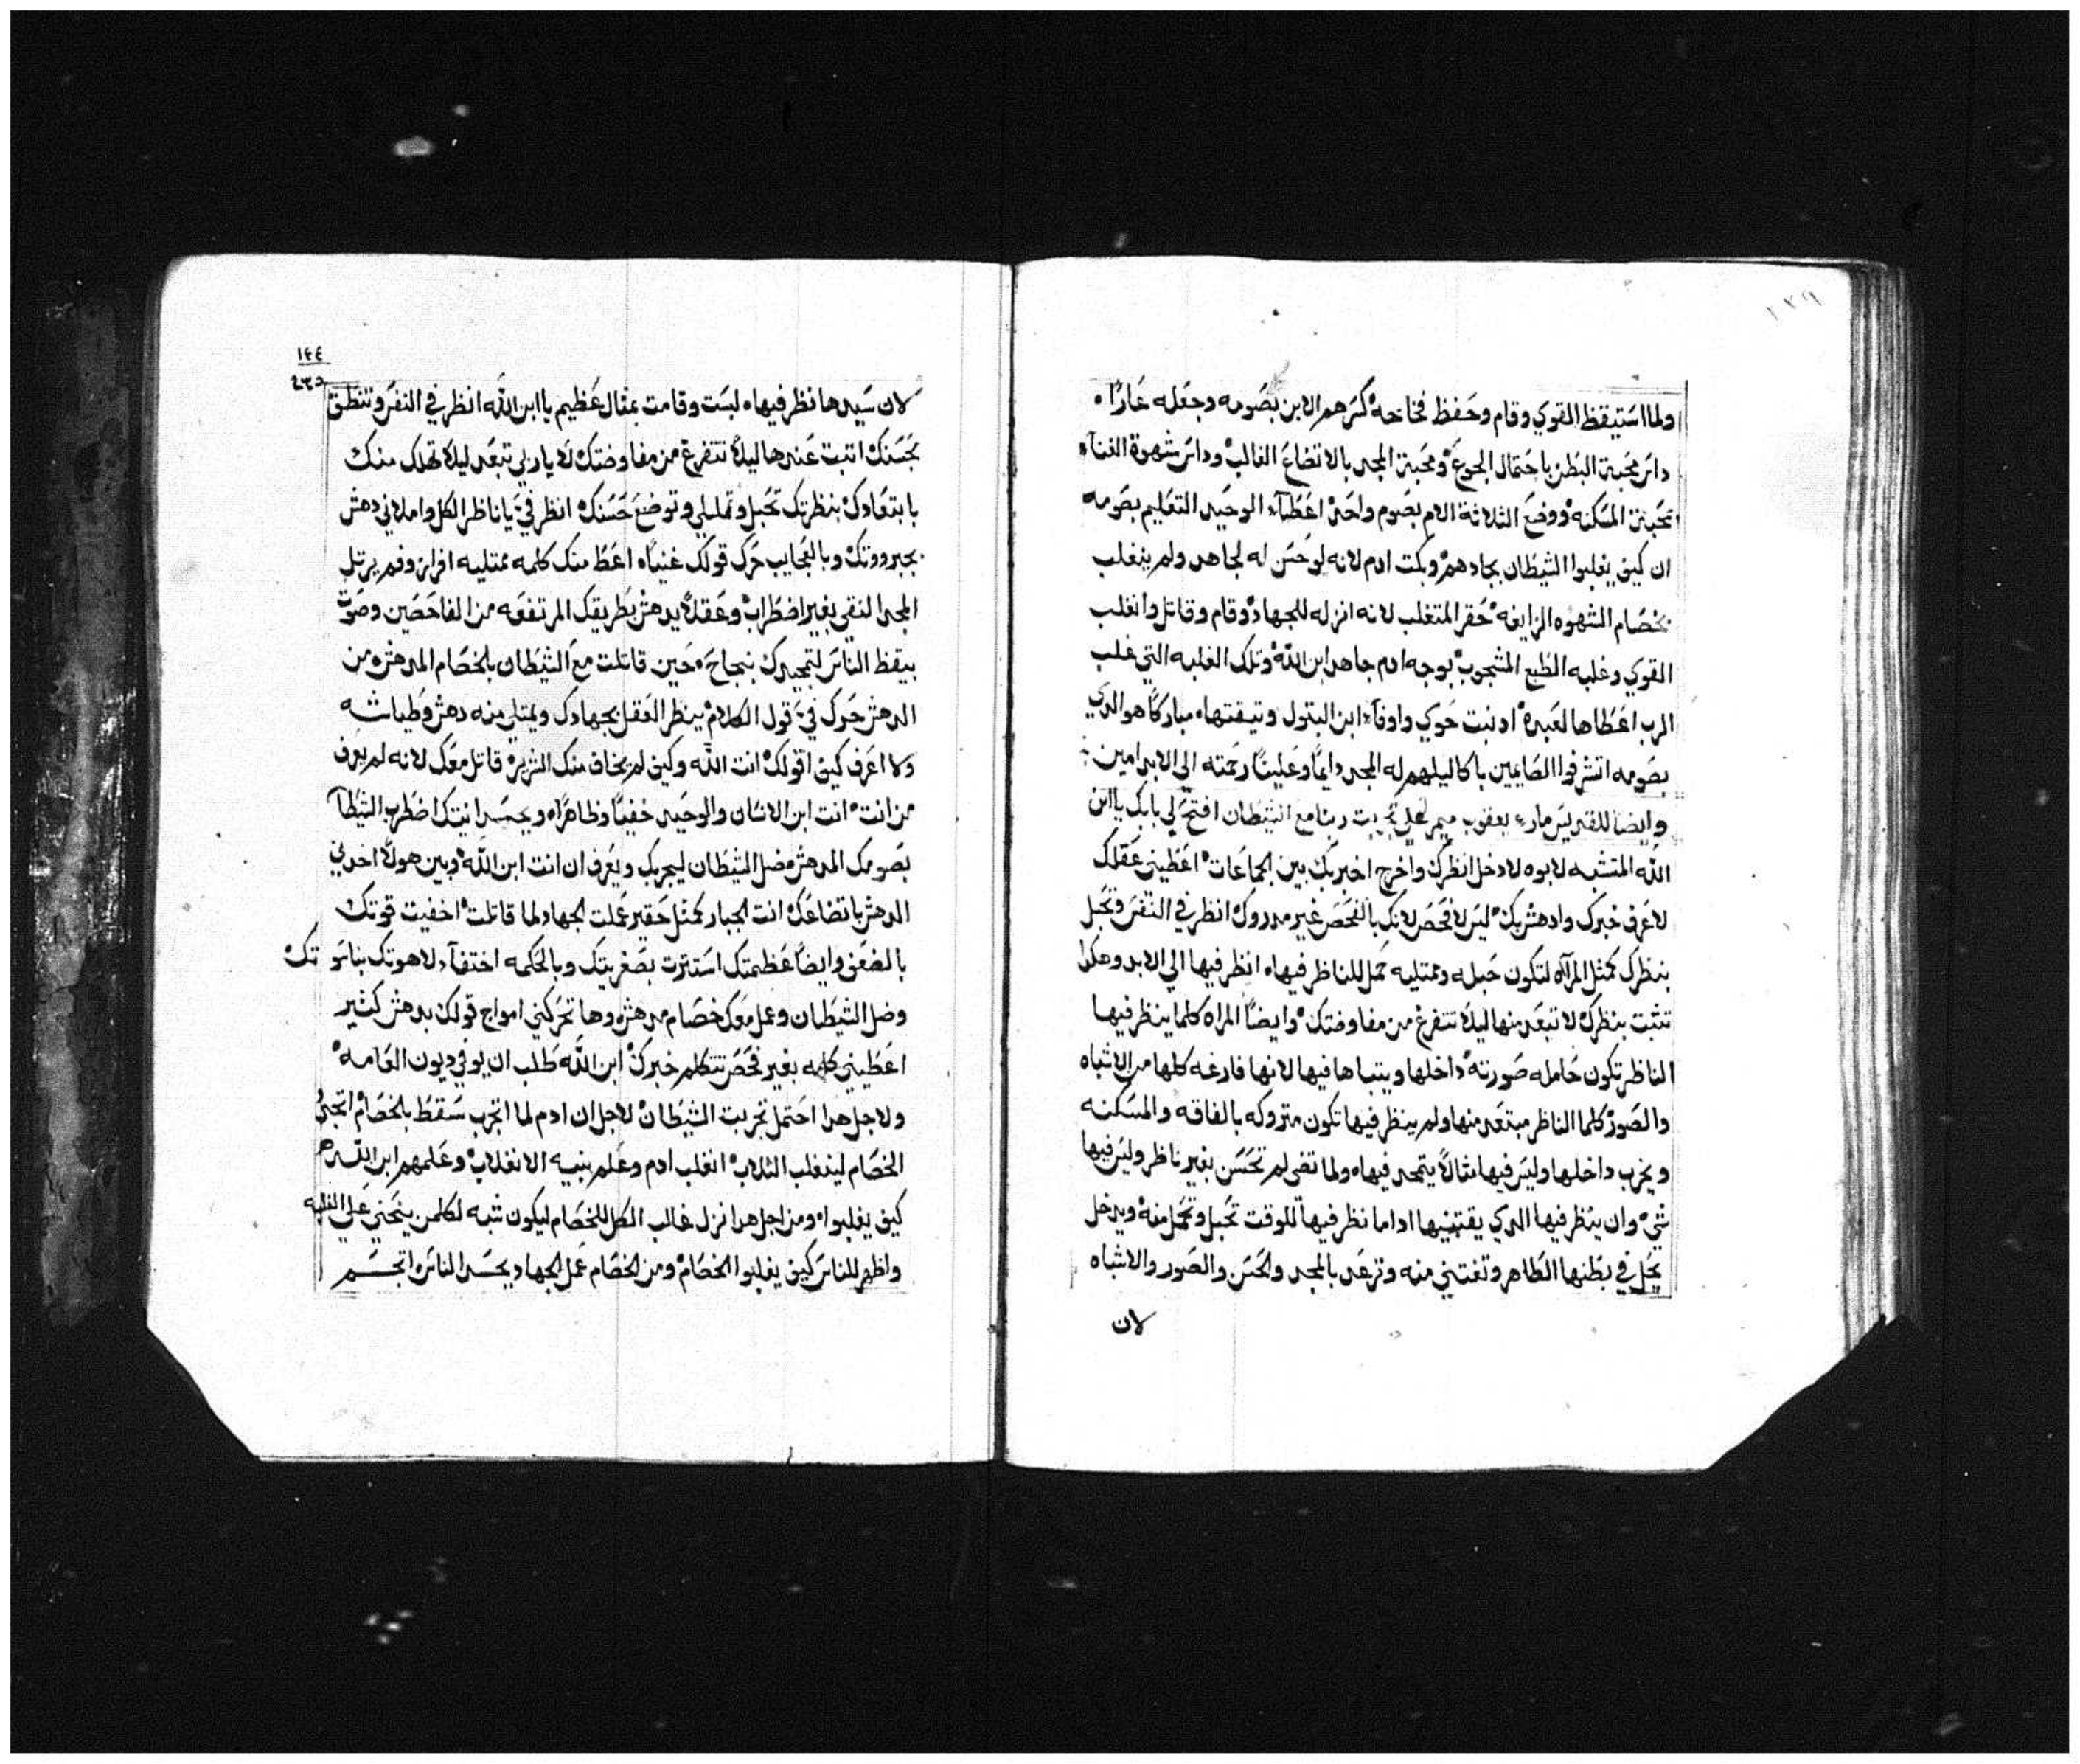 ١٣٩
ولما استيقظ القوي وقام وحفظ فخاخه كسرهم الابن بصومه وجعله عارًا
داس محبة البطن باحتمال الجوع ومحبة المجد بالاتضاع الغالب وداس شهوة الغناء
بمحبة المسكنه ووضع الثلاثة الام بصوم واحد اعطاء الوحيد التعليم بصومه
ان كيف يغلبوا الشيطان بجهادهم وبكت ادم لانه لو حسن له لجاهد ولم ينغلب
بخصام الشهوه الزايغه حقر المتغلب لانه انزله للجهاد وقام وقاتل وانغلب
القوي وغلبه الطبع المشجوب بوجه ادم جاهد ابن الله وتلك الغلبه التي غلب
الرب اعطاها لعبده اد بنت حوي واوفاء ابن البتول وتيقتها مباركًا هو الدي
بصومه اتشرفوا الصايمين باكاليلهم له المجد دايمًا وعلينا رحمته الي الابد امين
وايضا للقديس مار يعقوب ميمر لاجل تجربت ربنا مع الشيطان افتح لي بابك ياابن
الله المتشبه لابوه لادخل انظرك واخرج اخبر بك بين الجماعات اعطيني عقلك
لاعرف خبرك وادهش بك ليس لافحص لانك بالفحص غير مدروك انظر في النفس وتحبل
بنظرك كمثل المرآه لتكون حبله وممتليه حمل للناظر فيها انظر فيها الي الابد وهكدا
تثبت بنظرك لا تبعد منها ليلا تتفرغ من مفاوضتك وايضًا المراه كلما ينظر فيها
الناظر تكون حامله صورته داخلها ويتباها فيها لانها فارغه كلها من الاشباه
والصور كلما الناظر مبتعد منها ولم ينظر فيها تكون متروكه بالفاقه والمسكنه
ويخرب داخلها وليس فيها مثالًا يتمجد فيها ولما تضي لم تحسن بغير ناظر وليس فيها
شي وان ينظر فيها الدي يقتنيها اداما نظر فيها للوقت تحبل وتحمل منه ويدخل
يحل في بطنها الطاهر وتغتني منه وترعد بالمجد والحسن والصور والاشباه
لان
١٤٤
٢٣٥
لان سيدها نظر فيها لبست وقامت بمثال عظيم ياابن الله انظر في النفس وتنطق
بحسنك اتبت عندها ليلا تتفرغ من مفاوضتك لا يا ربي تبعد ليلا تهلك منك
بابتعادك بنظرتك تحبل وتمتلي وتوضع حسنك انظر في يا ناظر الكل واملاني دهش
بجبرووتك وبالعجايب حرك قولك غنيا اعط منك كلمه ممتليه افراز وفم يرتل
المجد النقي بغير اضطراب وعقلًا يدهش بطريقك المرتفعه من الفاحصين وصوت
بيقظ الناس لتمجيدك بنجاح حين قاتلت مع الشيطان بالخصام المدهش من
الدهش حرك في قول الكلام ينظر العقل بجهادك ويمتلي منه دهش وطياشه
ولا اعرف كيف اقولك انت الله وكيف لم يخاف منك الشرير قاتل معك لانه لم يعرف
من انت انت ابن الانسان والوحيد خفيًا وظاهرًا وبجسدانيتك اضطرب الشيطا
بصومك المدهش فضل الشيطان ليجربك ويعرف ان انت ابن الله وبين هولًا اخدني
الدهش باتضاعك انت الجبار كمثل حقير عملت الجهاد لما قاتلت اخفيت قوتك
بالضعف وايضًا عظمتك استترت بصغريتك وبالحكمه اختفاء لاهوتك بناسوتك
وضل الشيطان وعمل معك خصام مدهش وها تحركني امواج قولك بدهش كثير
اعطيني كلمه بغير فحص تتكلم خبرك ابن الله طلب ان يوفي ديون العامه
ولاجل هدا احتمل تجربت الشيطان لاجل ان ادم لما اتجرب سقط بالخصام اتجرب
الخصام لينغلب الثلاب انغلب ادم وعلم بنيه الانغلاب وعلمهم ابن الله
كيف يغلبوا ومن اجل هدا نزل غالب الكل للخصام ليكون شبه لكلمن ينحني علي الغلبه
واظهر للناس كيف يغلبوا الخصام ومن الخصام عمل الجهاد بجسد الناس اتجسم